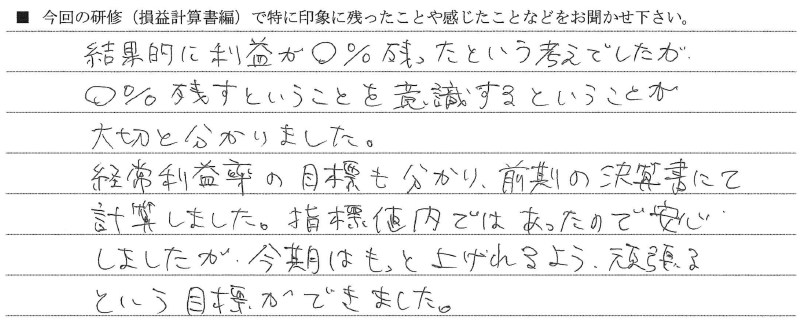 ■ 今回の研修（損益計算書編）で特に印象に残ったことや感じたことなどをお聞かせ下さい。
結果的に利益が〇％残ったという考えでしたが、
〇％残すということを意識するということが
大切と分かりました。
経常利益率の目標も分かり、前期の決算書にて
計算しました。指標値内ではあったので安心
しましたが、今期はもっと上げれるよう、頑張る
という目標ができました。